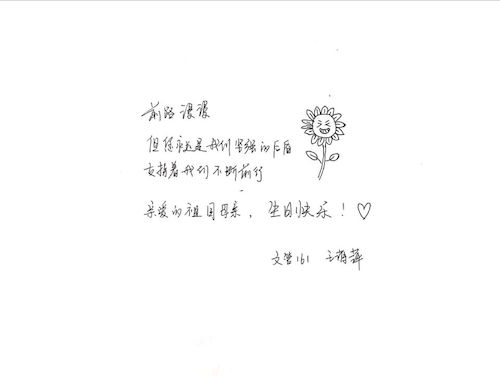 前路漫漫
但您永远是我们坚强的后盾
支撑着我们不断前行
亲爱的祖国母亲，生日快乐！♡
文管161